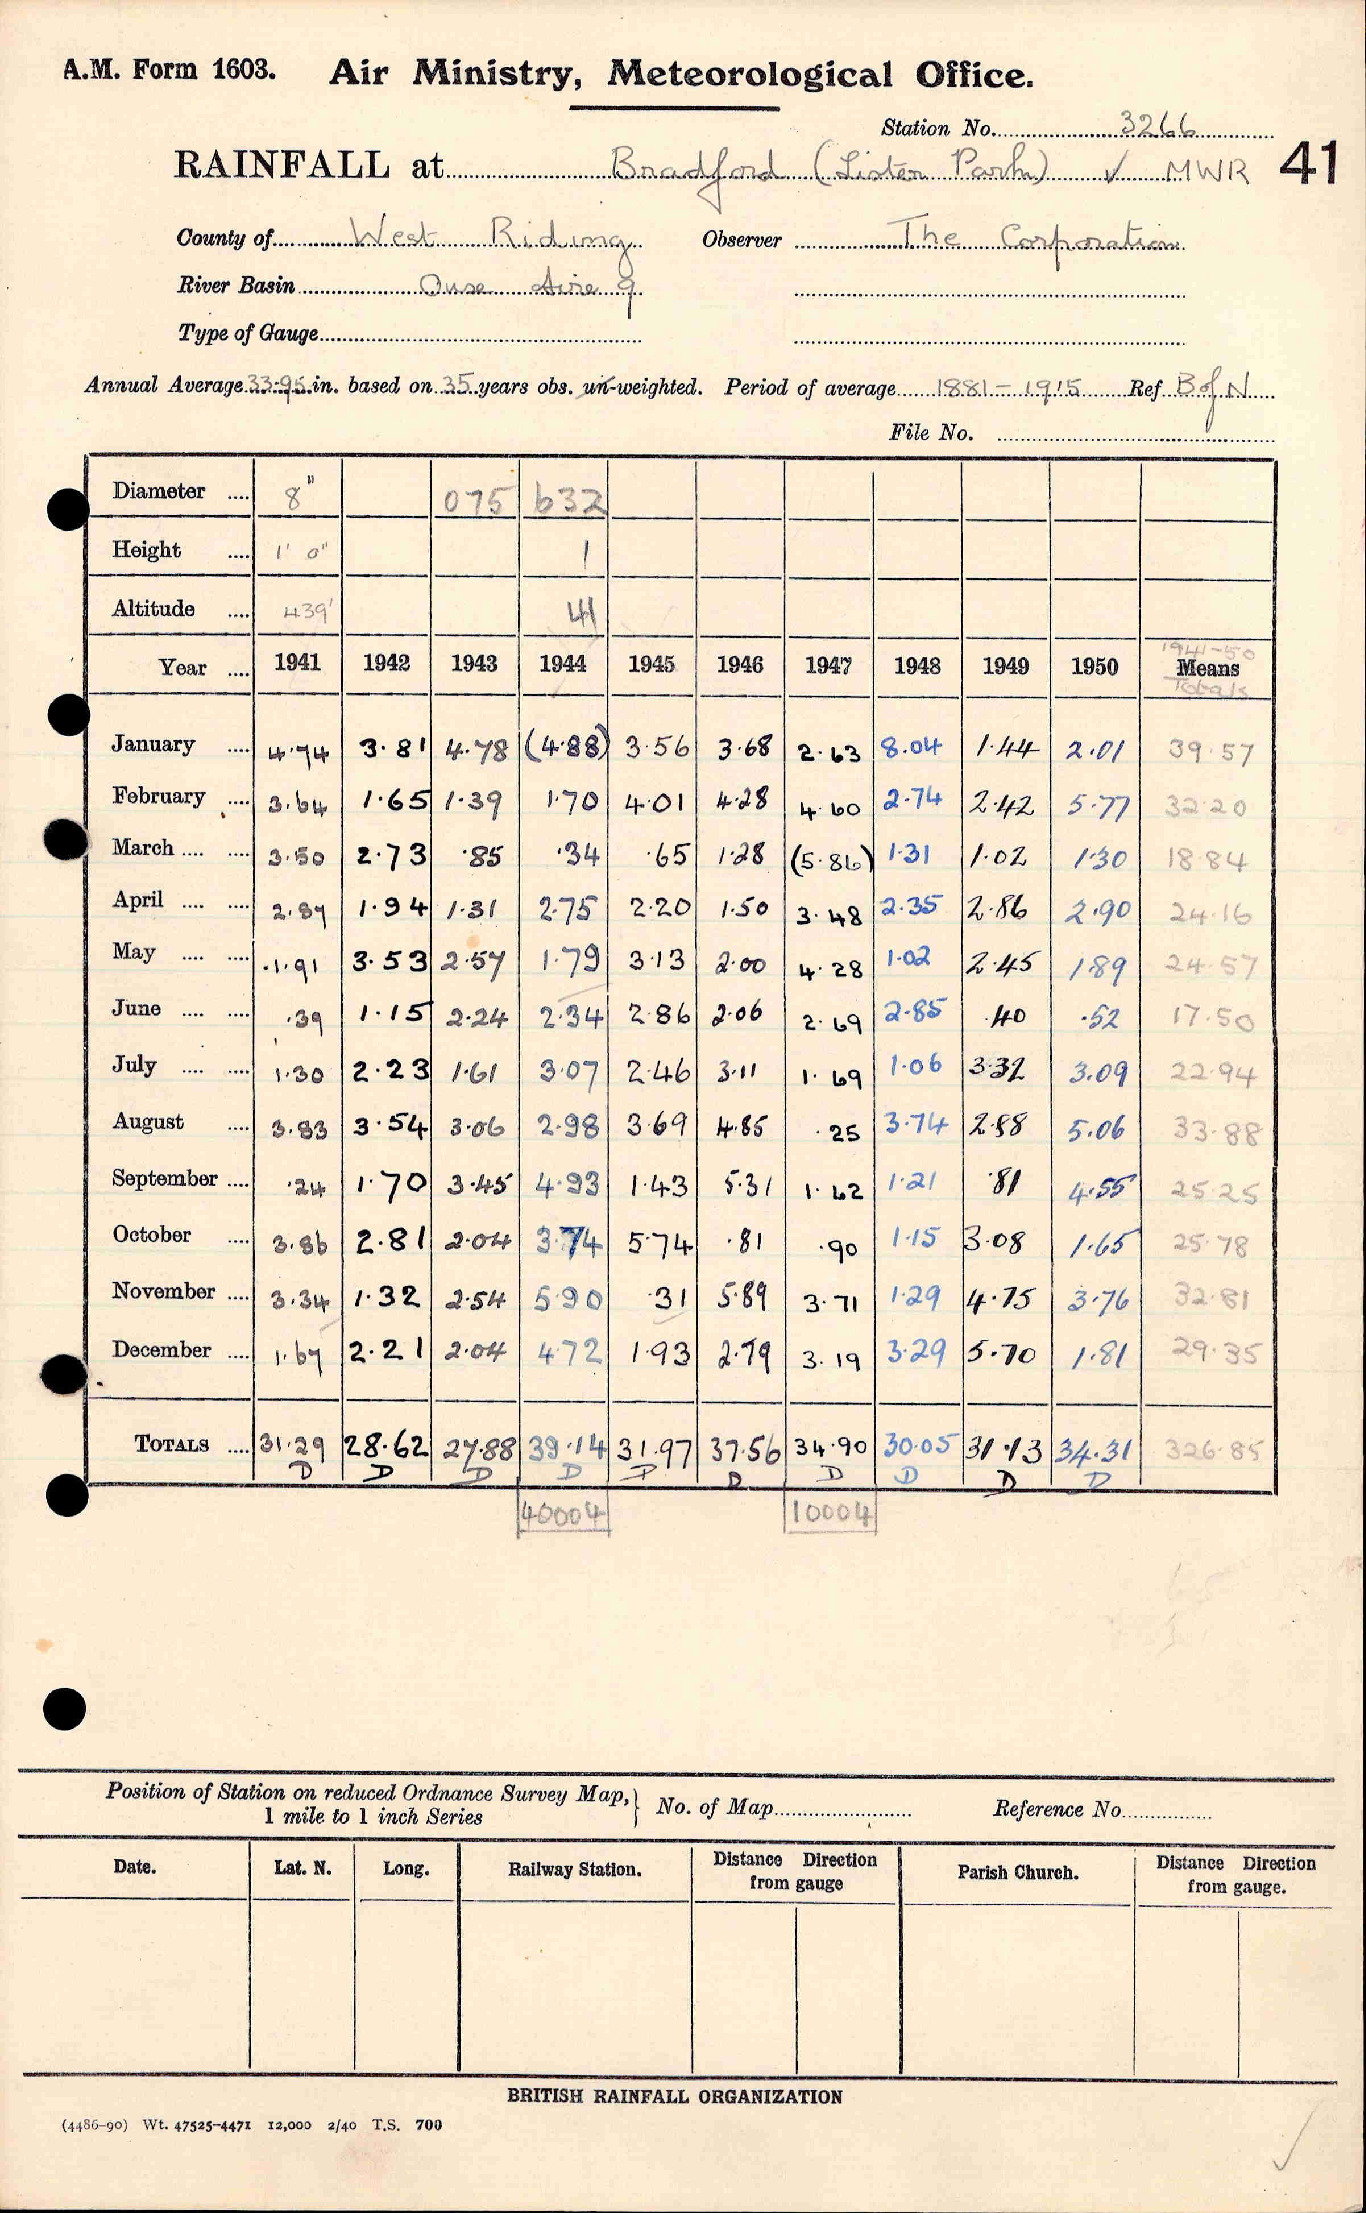 A.M. Form 1603. Air Ministry, Meteorological Office.
Station No. 3266
RAINFALL at Bradford (Lister Park) ✓ MWR 41
County of West Riding Observer The Corporation
River Basin Ouse Aire 9
Type of Gauge
Annual Average 33.95 in. based on 35 years obs. un-weighted. Period of average 1881-1915 Ref B of N
File No.
Diameter .... 8" 075 632
Height .... 1' 0" 1
Altitude .... 439' 41
1941-50
Year .... 1941 1942 1943 1944 1945 1946 1947 1948 1949 1950 Means
Totals
January .... 4.74 3.81 4.78 (4.88) 3.56 3.68 2.63 8.04 1.44 2.01 39.57
February .... 3.64 1.65 1.39 1.70 4.01 4.28 4.60 2.74 2.42 5.77 32.20
March .... .... 3.50 2.73 .85 .34 .65 1.28 (5.86) 1.31 1.02 1.30 18.84
April .... .... 2.87 1.94 1.31 2.75 2.20 1.50 3.48 2.35 2.86 2.90 24.16
May .... .... 1.91 3.53 2.57 1.79 3.13 2.00 4.28 1.02 2.45 1.89 24.57
June .... .... .39 1.15 2.24 2.34 2.86 2.06 2.69 2.85 .40 .52 17.50
July .... .... 1.30 2.23 1.61 3.07 2.46 3.11 1.69 1.06 3.32 3.09 22.94
August .... 3.83 3.54 3.06 2.98 3.69 4.85 .25 3.74 2.88 5.06 33.88
September .... .24 1.70 3.45 4.93 1.43 5.31 1.62 1.21 .81 4.55 25.25
October .... 3.86 2.81 2.04 3.74 5.74 .81 .90 1.15 3.08 1.65 25.78
November .... 3.34 1.32 2.54 5.90 .31 5.89 3.71 1.29 4.75 3.76 32.81
December .... 1.67 2.21 2.04 4.72 1.93 2.79 3.19 3.29 5.70 1.81 29.35
TOTALS .... 31.29 28.62 27.88 39.14 31.97 37.56 34.90 30.05 31.13 34.31 326.85
D D D D D D D D D D
40004 10004
Position of Station on reduced Ordnance Survey Map, } No. of Map Reference No.
1 mile to 1 inch Series
Date. Lat. N. Long. Railway Station. Distance Direction from gauge Parish Church. Distance Direction from gauge.
BRITISH RAINFALL ORGANIZATION
(4486-90) Wt. 47525-4471 12,000 2/40 T.S. 700